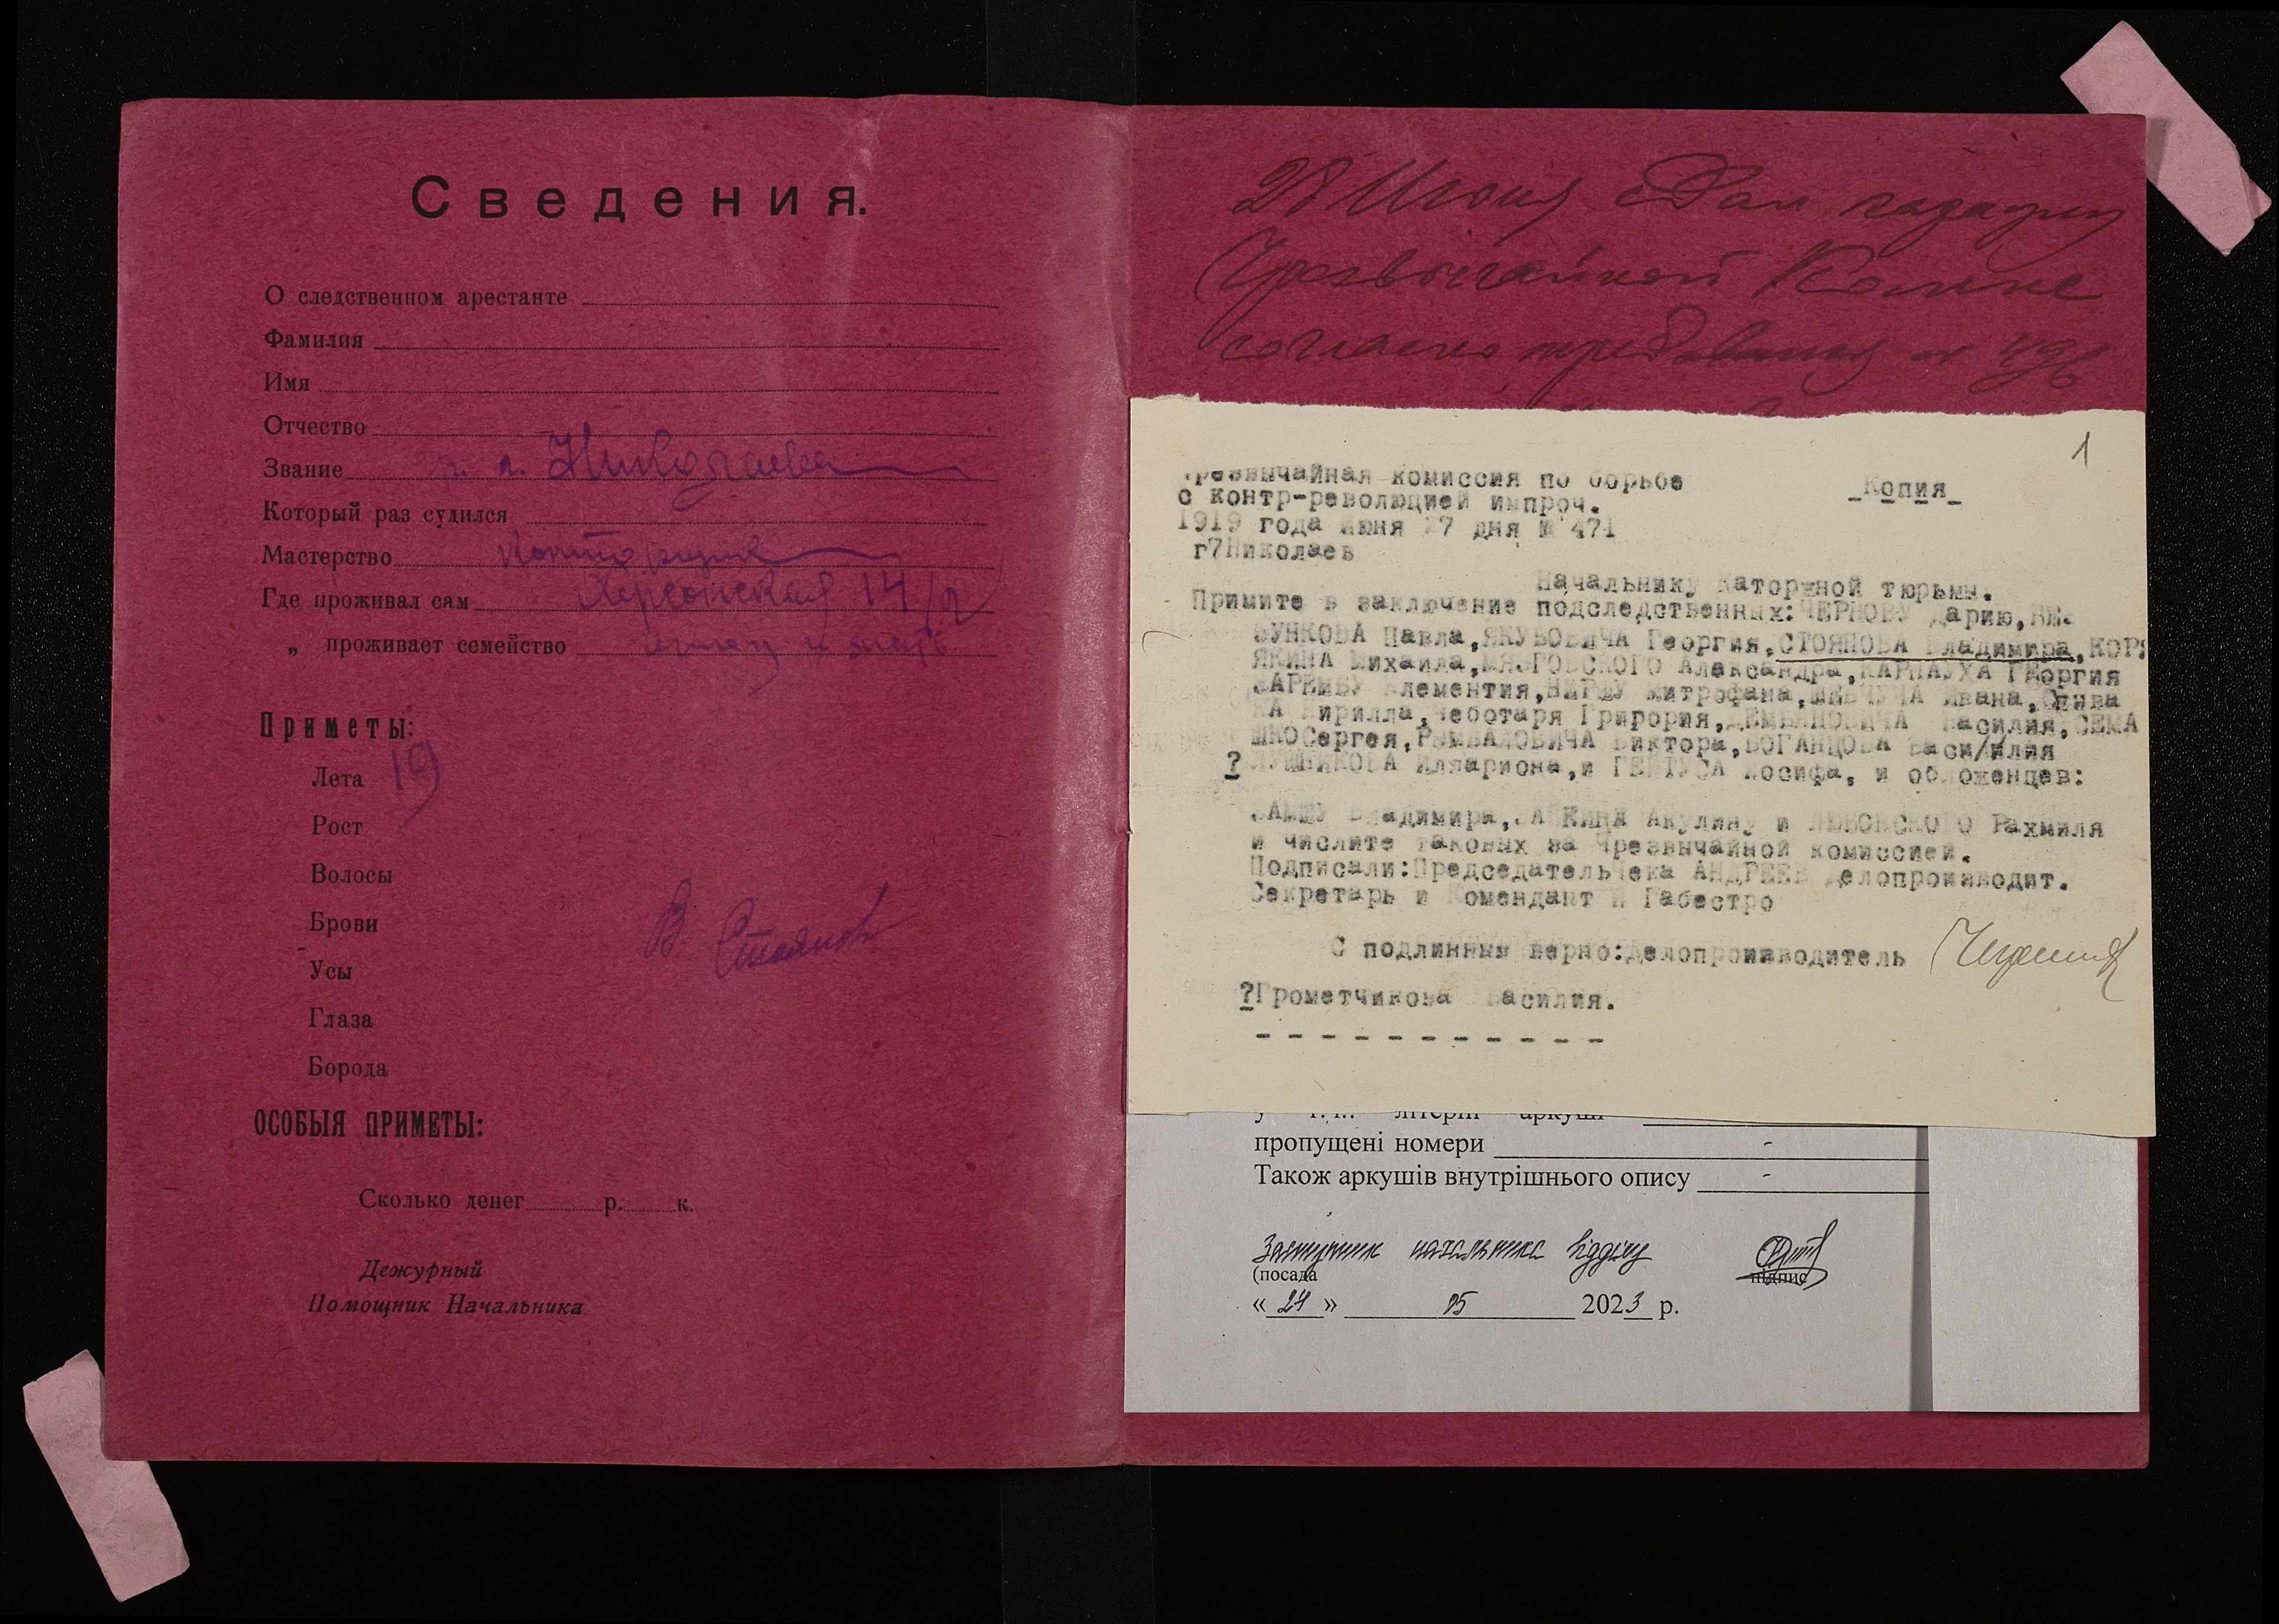 Сведения.
О следственном арестанте
Фамилия
Имя
Отчество
Звание г. Николаева
Который раз судился
Мастерство
Где проживал сам Херсонская 14/2
„ проживает семейство отец и мать
Приметы:
Лета 19
Рост
Волосы
Брови
Усы
Глаза
Борода
В. Стоянов
ОСОБЫЯ ПРИМЕТЫ:
Сколько денег р. к.
Дежурный
Помощник Начальника
28 Июня
Чрезвычайной
согласно требования
1
Чрезвычайная комиссия по борьбе
с контр-революцией ипроч.
Копия
1919 года июня 27 дня № 471
г?Николаев
Начальнику Каторжной тюрьмы.
Примите в заключение подследственных: ЧЕРНОВУ Дарию,
БУНКОВА Павла,ЯКУБОВИЧА Георгия,СТОЯНОВА Владимира,КОР
ЯКИНА Михаила,МЯЗГОВСКОГО Александра,КАРНАУХА ГЕоргия
Клементия, Митрофана,ШЕВЧУЧА Ивана,Спива
КА Кирилла,Чеботаря Григория,ДЕМЬЯНОВИЧА Василия,СЕМА
ШКОСергея,РЫМБАЛОВИЧА Виктора,БОГАНЦОВА Васи/илия
? Иллариона,и Иосифа, и обложенцев:
Владимира, Акулину и Рахмиля
и числите таковых за Чрезвычайной комиссией.
Подписали:ПредседательЧека АНДРЕЕВ Делопроизводит.
Секретарь и Комендант И Габестро
С подлинным верно:Делопроизводитель
?Грометчикова Василия.
- - - - - - - - - - -
літерні аркуші
пропущені номери -
Також аркушів внутрішнього опису -
Заступник начальника відділу
(посада
підпис
« 24 » 05 2023 р.